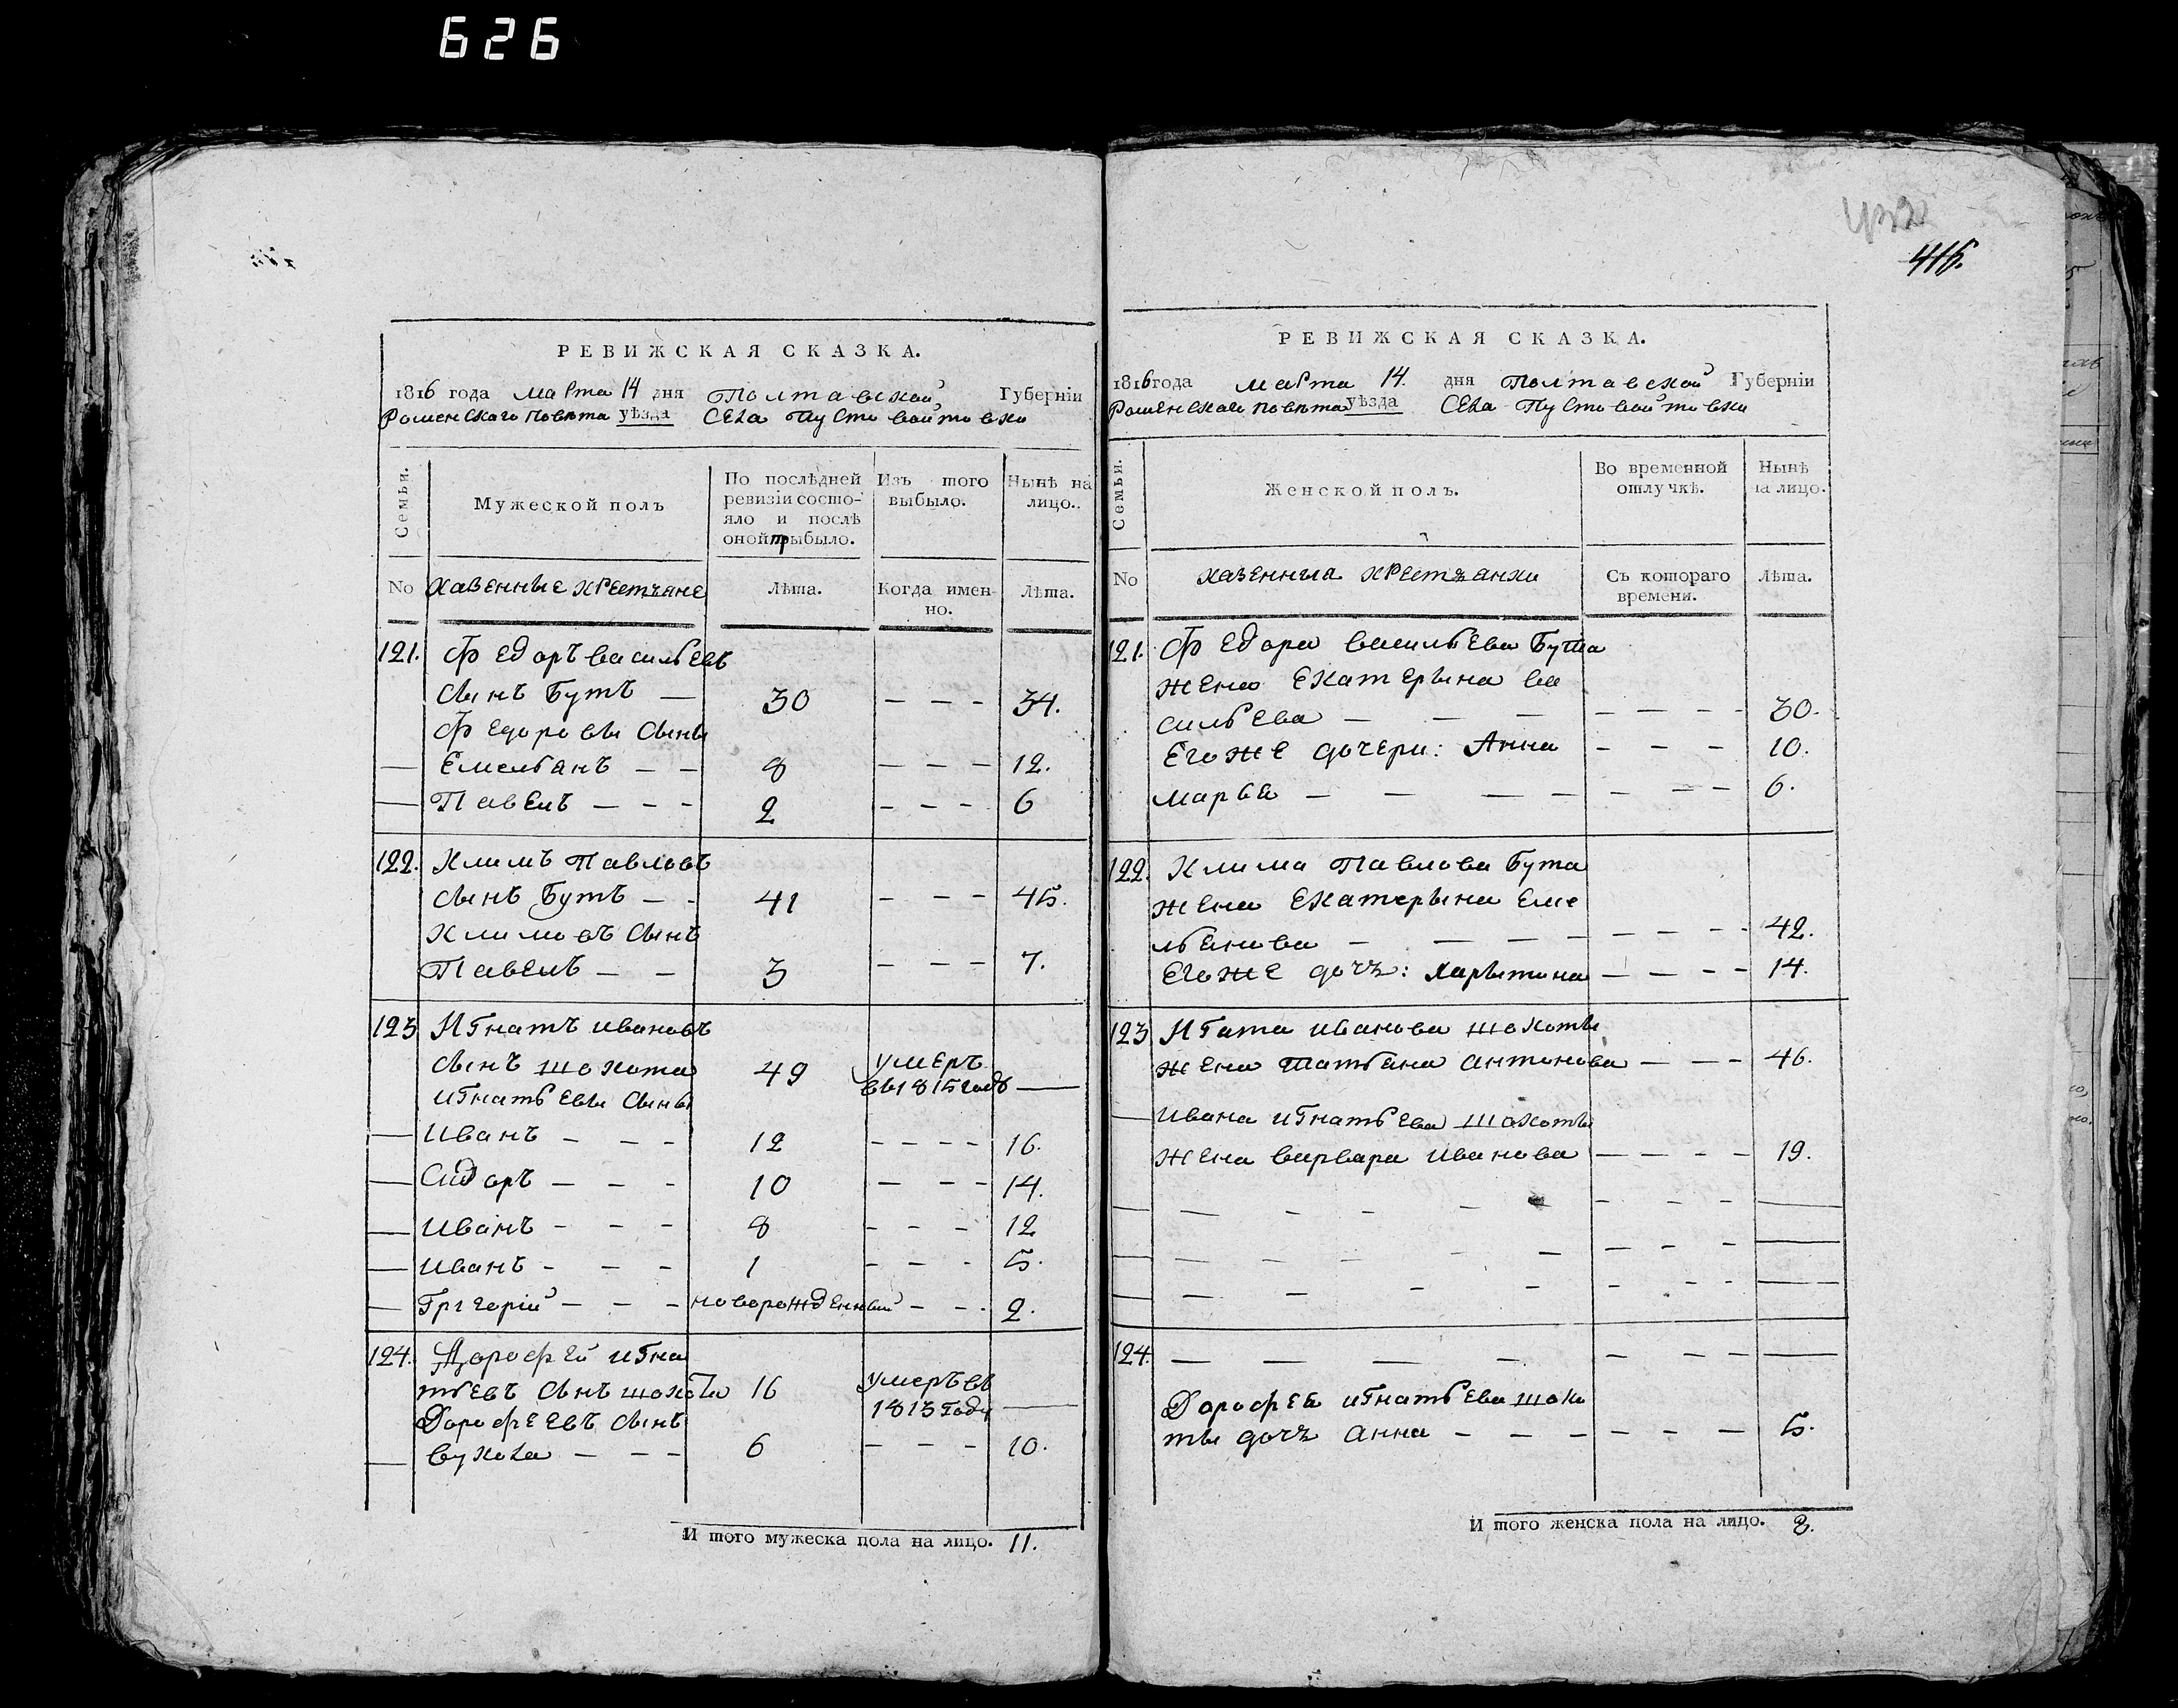 626
415.
РЕВИЖСКАЯ СКАЗКА.
1816 года марта 14 дня Полтавской Губерніи
Роменскаго повѣта уѣзда Села Пустовойтовки
Семьи.
Мужеской полъ
По послѣдней ревизіи состо-
яло и послѣ
оной прыбыло.
Изъ того
выбыло.
Нынѣ на
лицо.
No Казенные крестъяне Лѣта. Когда имен-
но. Лѣта.
121. Федоръ васильевъ
сынъ Бутъ — 30 — — — 34.
Федоровы сыны
— Емельянъ — — 8 — — — 12.
— Павелъ — — — 2 — — — 6
122. Климъ Павловъ
сынъ Бутъ — — 41 — — — 45.
Климовъ сынъ
Павелъ — — 3 — — — 7.
123 Игнатъ ивановъ
сынъ шокота 49 умеръ
въ 1815 годѣ —
игнатьевы сыны
— иванъ — — — 12 — — — — 16.
— Сидоръ — — — 10 — — — 14.
— иванъ — — — 8 — — — 12
— иванъ — — — 1 — — — 5.
— Григорій — — — новорожденный — — — 2.
124. Дорофей игна
тьевъ сынъ шокота 16 умеръ въ
1813 году —
Дорофеевъ сынъ
— вукола — — — 6 — — — 10.
И того мужеска пола на лицо. 11.
РЕВИЖСКАЯ СКАЗКА.
1816 года марта 14. дня Полтавской Губерніи
Роменскаго повѣта уѣзда Села Пустовойтовки
Семьи.
Женской полъ.
Во временной
отлучкѣ.
Нынѣ
на лицо.
No казенныя крестъянки Съ котораго
времени. Лѣта.
121. Федора васильева Бута
жена Екатерына ва
сильева — — — — — — — 30.
Егоже дочери: Анна — — — 10.
марья — — — — — — — 6.
122. Клима Павлова Бута
жена Екатерына Еме
льянова — — — — — — — — 42.
Егоже дочъ: Харытина — — — — 14.
123 Игата иванова шокоты
жена Татьяна антонова — — — 46.
— ивана игнатьева шокоты
жена варвара иванова — — — — 19.
124. — — — — — — — —
Дорофея игнатьева шоко
ты дочъ анна — — — — — — 5.
И того женска пола на лицо. 8.